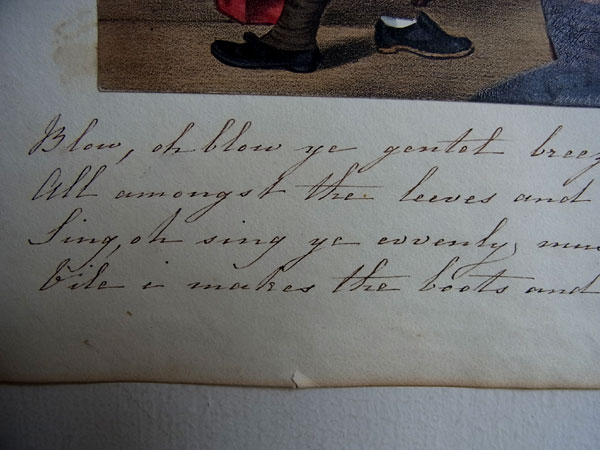 Blow, oh blow ye gentel breez
All amongst the leeves and
Sing, oh sing ye evvenly, mus
Vile i makes the boots and